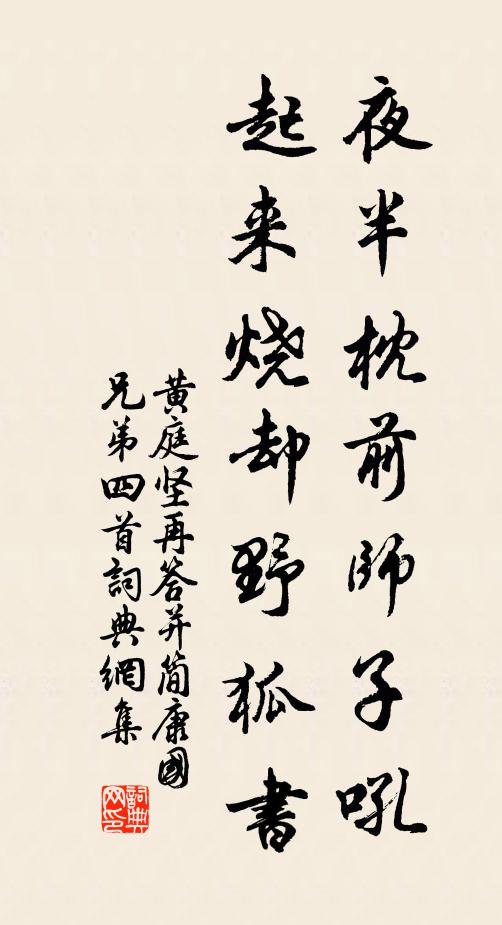 夜半枕前師子吼
起来烧却野狐書
黄庭坚再答并简康國
兄弟四首詞典網集
詞典
网印